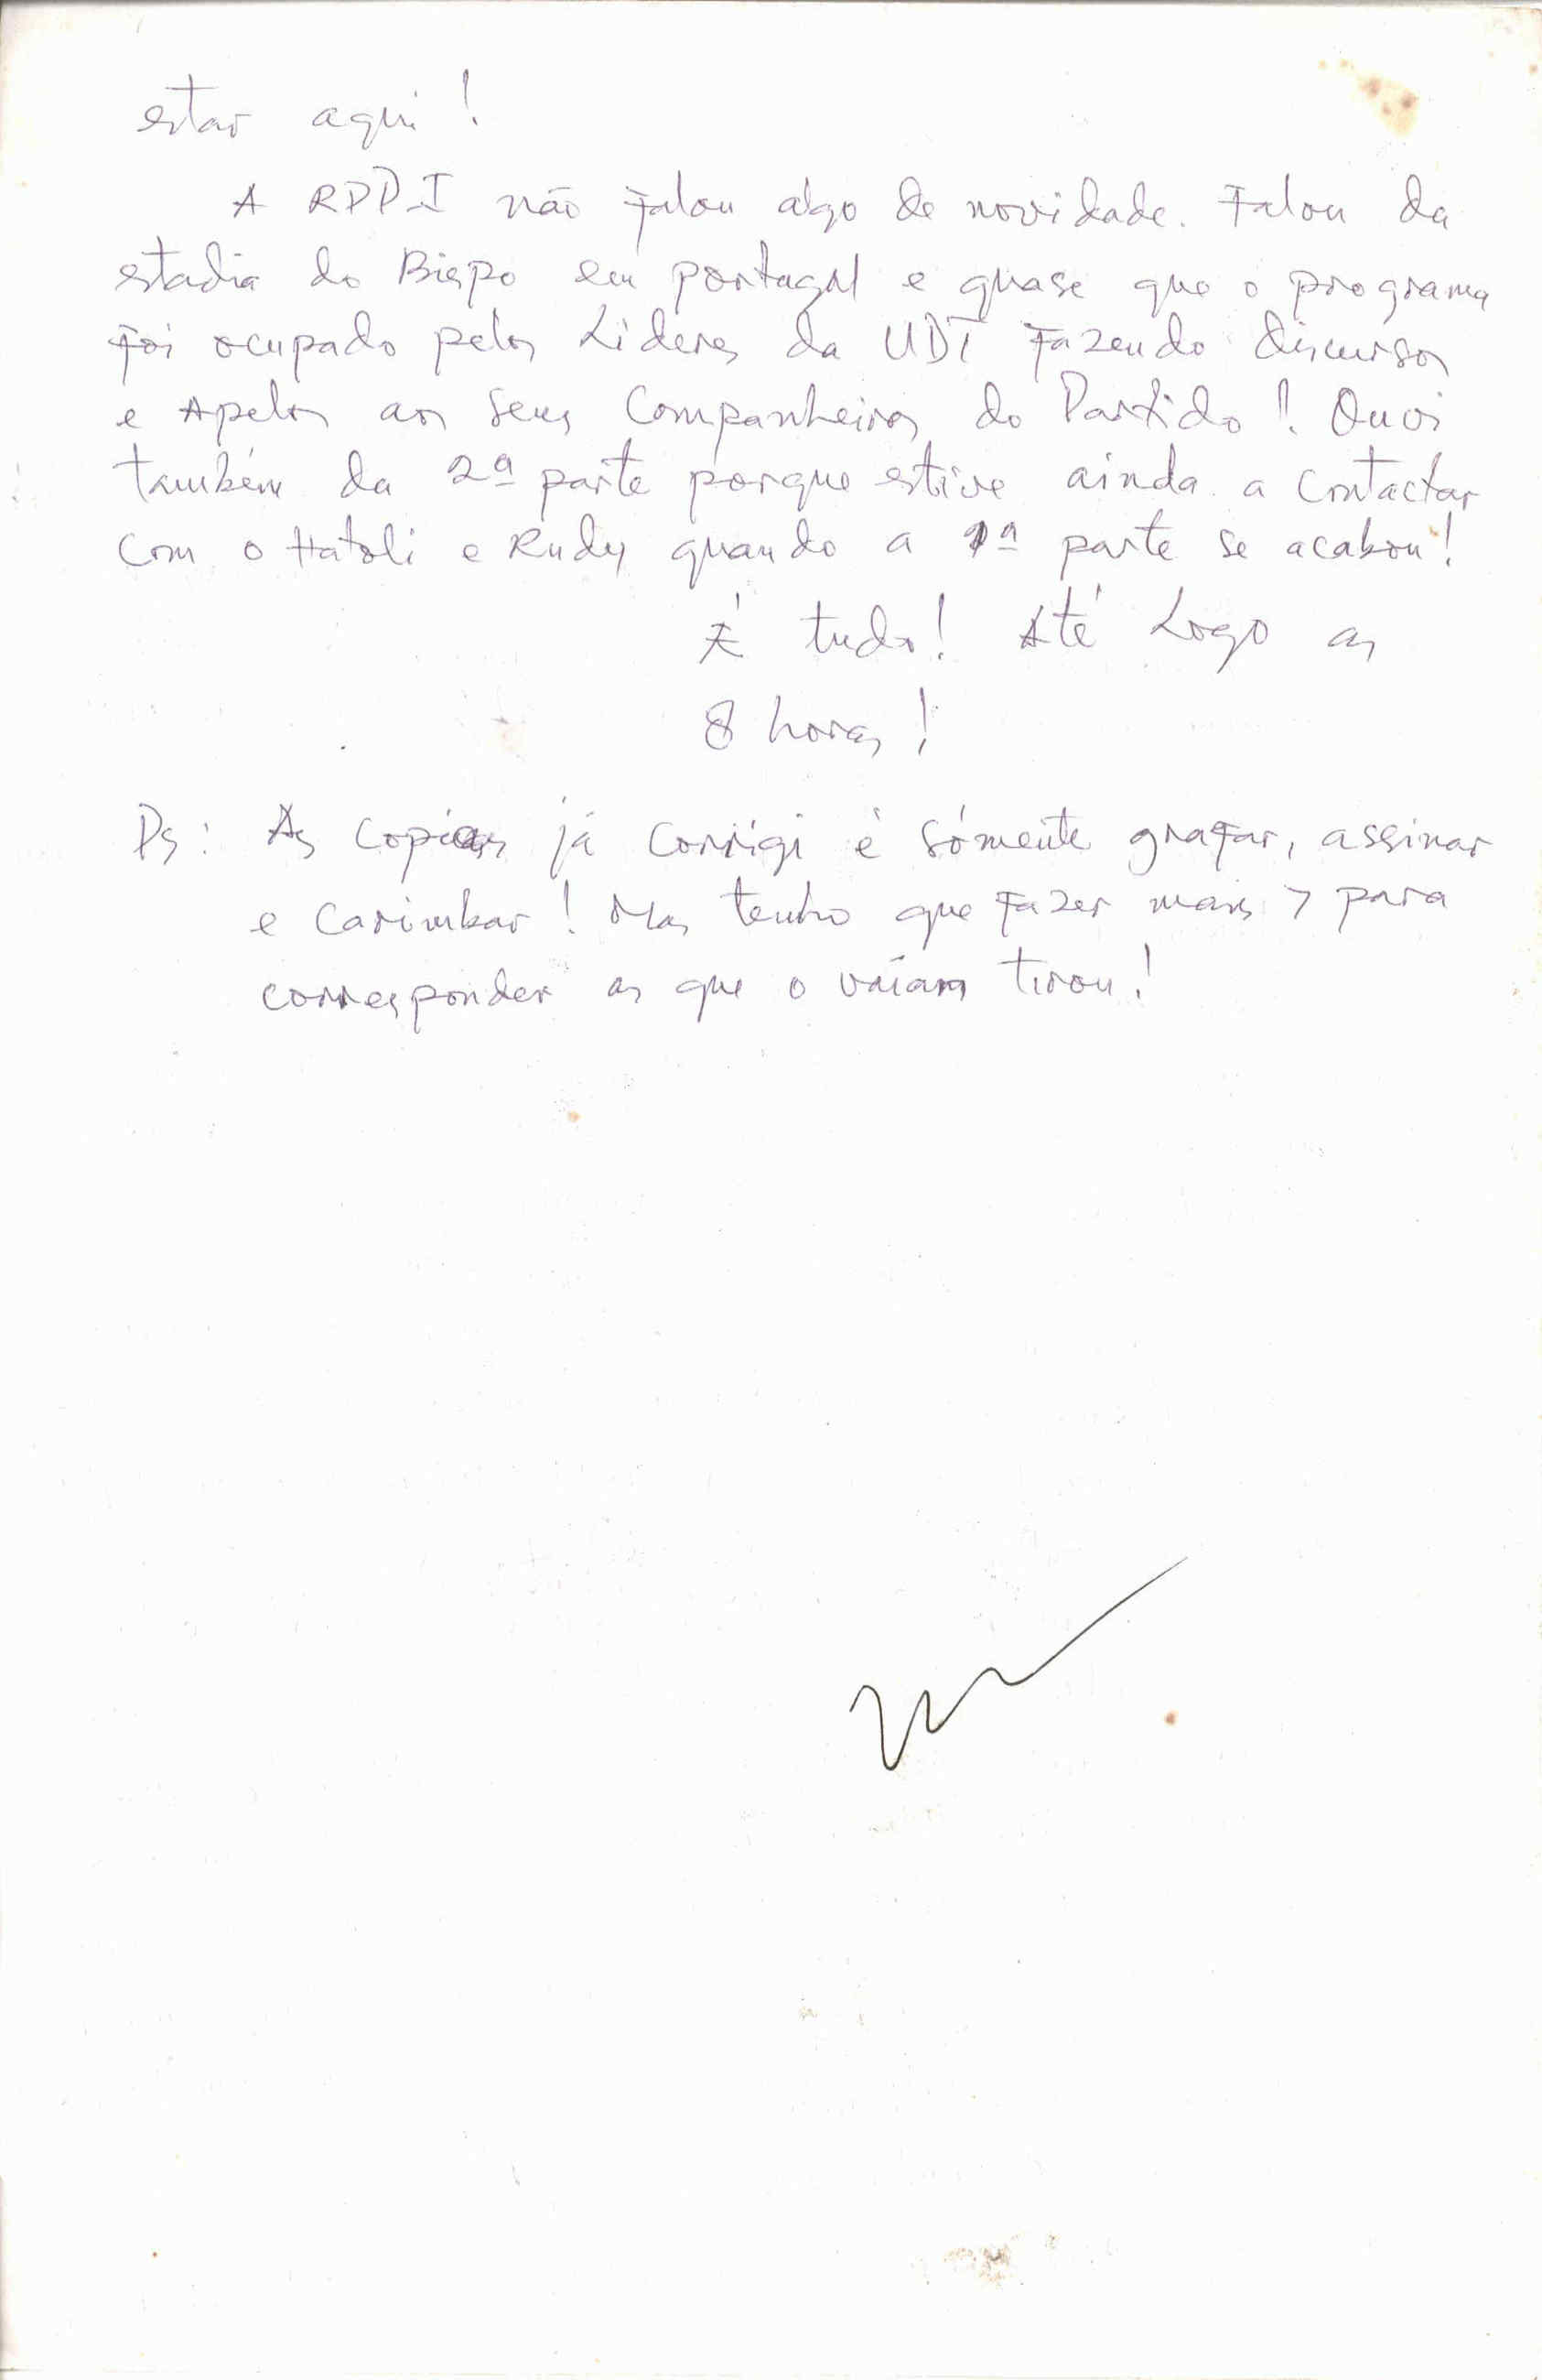 estar aqui!
A RDP-I não falou algo de novidade. Falou da
estadia do Bispo em portugal e quase que o programa
foi ocupado pelos Lideres da UDT Fazendo discursos
e Apelos aos seus Companheiros do Partido! Ouvi
também da 2ª parte porque estive ainda a contactar
com o Hatoli e Rudy quando a 1ª parte se acabou!
É tudo! Até Logo as
8 horas!
Ps: As copias já corrigi é sómente grafar, assinar
e carimbar! Mas tenho que Fazer mais 7 para
corresponder as que o tirou!